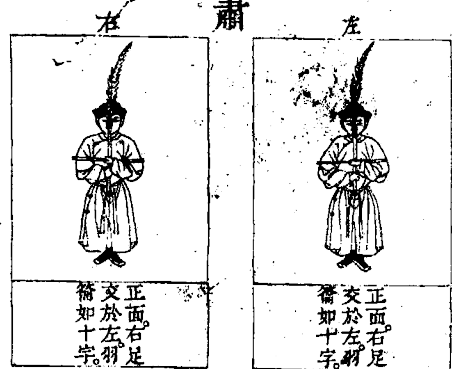 肅
左
正面。右足
交於左。羽
籥如十字。
右
正面。右足
交於左。羽
籥如十字。